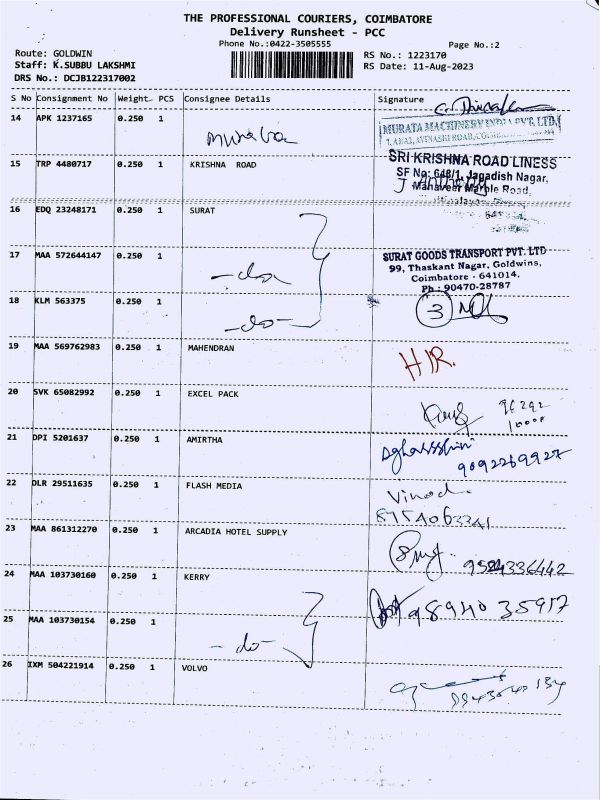 THE PROFESSIONAL COURIERS, COIMBATORE
Delivery Runsheet - PCC
Phone No.:0422-3505555
Page No.:2
Route: GOLDWIN
RS No.: 1223170
Staff: K.SUBBU LAKSHMI
RS Date: 11-Aug-2023
DRS No.: DCJB122317002
S No Consignment No Weight PCS Consignee Details Signature
14 APK 1237165 0.250 1
MURATA MACHINERY INDIA PVT. LTD.
15 TRP 4480717 0.250 1 KRISHNA ROAD
SRI KRISHNA ROAD LINESS
SF No: 648/1, Jagadish Nagar,
Mahaveer Marble Road,
16 EDQ 23248171 0.250 1 SURAT
17 MAA 572644147 0.250 1 -do-
SURAT GOODS TRANSPORT PVT. LTD
99, Thaskant Nagar, Goldwins,
Coimbatore - 641014.
Ph : 90470-28787
18 KLM 563375 0.250 1 -do- 3
19 MAA 569762983 0.250 1 MAHENDRAN H/R.
20 SVK 65082992 0.250 1 EXCEL PACK
21 DPI 5201637 0.250 1 AMIRTHA
9092269927
22 DLR 29511635 0.250 1 FLASH MEDIA Vinod.
23 MAA 861312270 0.250 1 ARCADIA HOTEL SUPPLY
24 MAA 103730160 0.250 1 KERRY
98940 35917
25 MAA 103730154 0.250 1 -do-
26 IXM 504221914 0.250 1 VOLVO